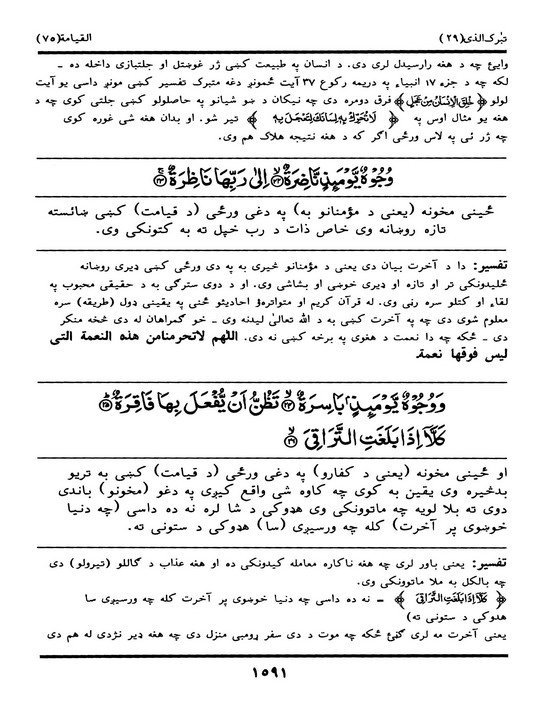 تبرك الذى (٢٩)
القيامة (٧٥)
وایئ چه د هغه رارسیدل لری دی. د انسان په طبیعت کښی ژر غوښتل او جلتبازی داخله ده ـ
لکه چه د جزء ١٧ انبیاء په دریمه رکوع ٣٧ آیت ځمونږ دغه متبرک تفسیر کښی مونږ داسی یو آیت
لولو ﴿ خُلِقَ الْإِنْسَانُ مِنْ عَجَلٍ ﴾ فرق دومره دی چه نیکان د ښو شیانو په حاصلولو کښی جلتی کوی چه د
هغه یو مثال اوس په ﴿ لَا تُحَرِّكْ بِهِ لِسَانَكَ لِتَعْجَلَ بِهِ ﴾ تیر شو. او بدان هغه شی غوره کوی
چه ژر ئی په لاس ورځی اگر که د هغه نتیجه هلاک هم وی.
وُجُوْهٌ يَّوْمَئِذٍ نَّاضِرَةٌ ۙ﴿٢٢﴾ اِلٰى رَبِّهَا نَاظِرَةٌ ۚ﴿٢٣﴾
ځینی مخونه (یعنی د مؤمنانو به) په دغی ورځی (د قیامت) کښی ښائسته
تازه روښانه وی خاص ذات د رب خپل ته به کتونکی وی.
تفسیر: دا د آخرت بیان دی یعنی د مؤمنانو څیری به په دی ورځی کښی ډیری روښانه
ځلیدونکی تر او تازه او ډیری خوښی او بشاشی وی. او د دوی سترگی به د حقیقی محبوب په
لقاء او کتلو سره رڼی وی. له قرآن کریم او متواترؤ احادیثو ځنی په یقینی ډول (طریقه) سره
معلوم شوی دی چه په آخرت کښی به د الله تعالیٰ لیدنه وی ـ خو گمراهان له دی څخه منکر
دی ـ ځکه چه دا نعمت د هغوی په برخه کښی نه دی. اللهم لاتحرمنا من هذه النعمة التی
لیس فوقها نعمة.
وَوُجُوْهٌ يَّوْمَئِذٍۢ بَاسِرَةٌ ۙ﴿٢٤﴾ تَظُنُّ اَنْ يُّفْعَلَ بِهَا فَاقِرَةٌ ؕ﴿٢٥﴾
كَلَّاۤ اِذَا بَلَغَتِ التَّرَاقِىَ ۙ﴿٢٦﴾
او ځینی مخونه (یعنی د کفارو) په دغی ورځی (د قیامت) کښی به تریو
بدځیره وی یقین به کوی چه کاوه شی واقع کیږی په دغو (مخونو) باندی
دوی ته بلا لویه چه ماتوونکی وی هډوکی د شا لره نه ده داسی (چه دنیا
خوښوی پر آخرت) کله چه ورسیږی (سا) هډوکی د ستونی ته.
تفسیر: یعنی باور لری چه هغه ناکاره معامله کیدونکی ده او هغه عذاب د گاللو (تیرولو) دی
چه بالکل به ملا ماتوونکی وی.
﴿ كَلَّا إِذَا بَلَغَتِ التَّرَاقِيَ ﴾ ـ نه ده داسی چه دنیا خوښوی پر آخرت کله چه ورسیږی سا
هډوکی د ستونی ته)
یعنی آخرت مه لری گڼئ ځکه چه موت د دی سفر ړومبی منزل دی چه هغه ډیر نژدی له هم دی
١٥٩١